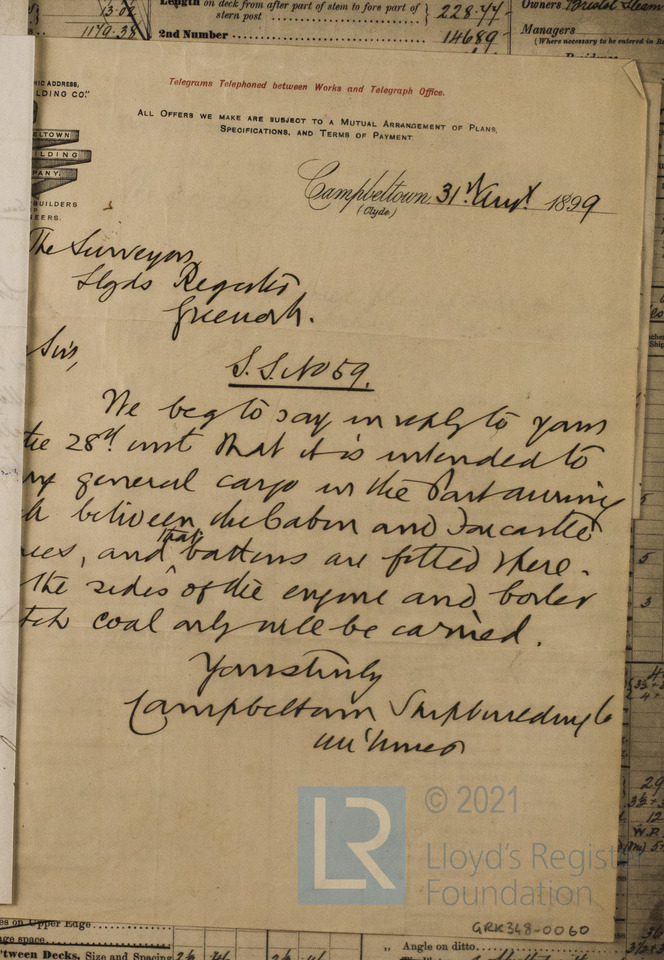 13.02
1179.38
Length on deck from after part of stem to fore part of stern post
228.77
2nd Number
14689
Owners Bristol Steam
Managers
(Where necessary to be entered in Re
HIC ADDRESS,
LDING CO."
ELTOWN
ILDING
PANY.
BUILDERS
NEERS.
Telegrams Telephoned between Works and Telegraph Office.
ALL OFFERS WE MAKE ARE SUBJECT TO A MUTUAL ARRANGEMENT OF PLANS,
SPECIFICATIONS, AND TERMS OF PAYMENT
Campbeltown 31st Augt 1899
(Clyde)
The Surveyors
Lloyds Register
Greenock.
Sirs,
S.S. No 59.
We beg to say in reply to yours
the 28th inst that it is intended to
general cargo in the Part awning
between the Cabin and Forcastle
and that battens are fitted there.
the sides of the engine and boiler
coal only will be carried.
Yours truly
Campbeltown Shipbuilding Co
© 2021
LR
Lloyd's Register
Foundation
GRK348-0060
es on Upper Edge
age space
'tween Decks, Size and Spacing
" Angle on ditto